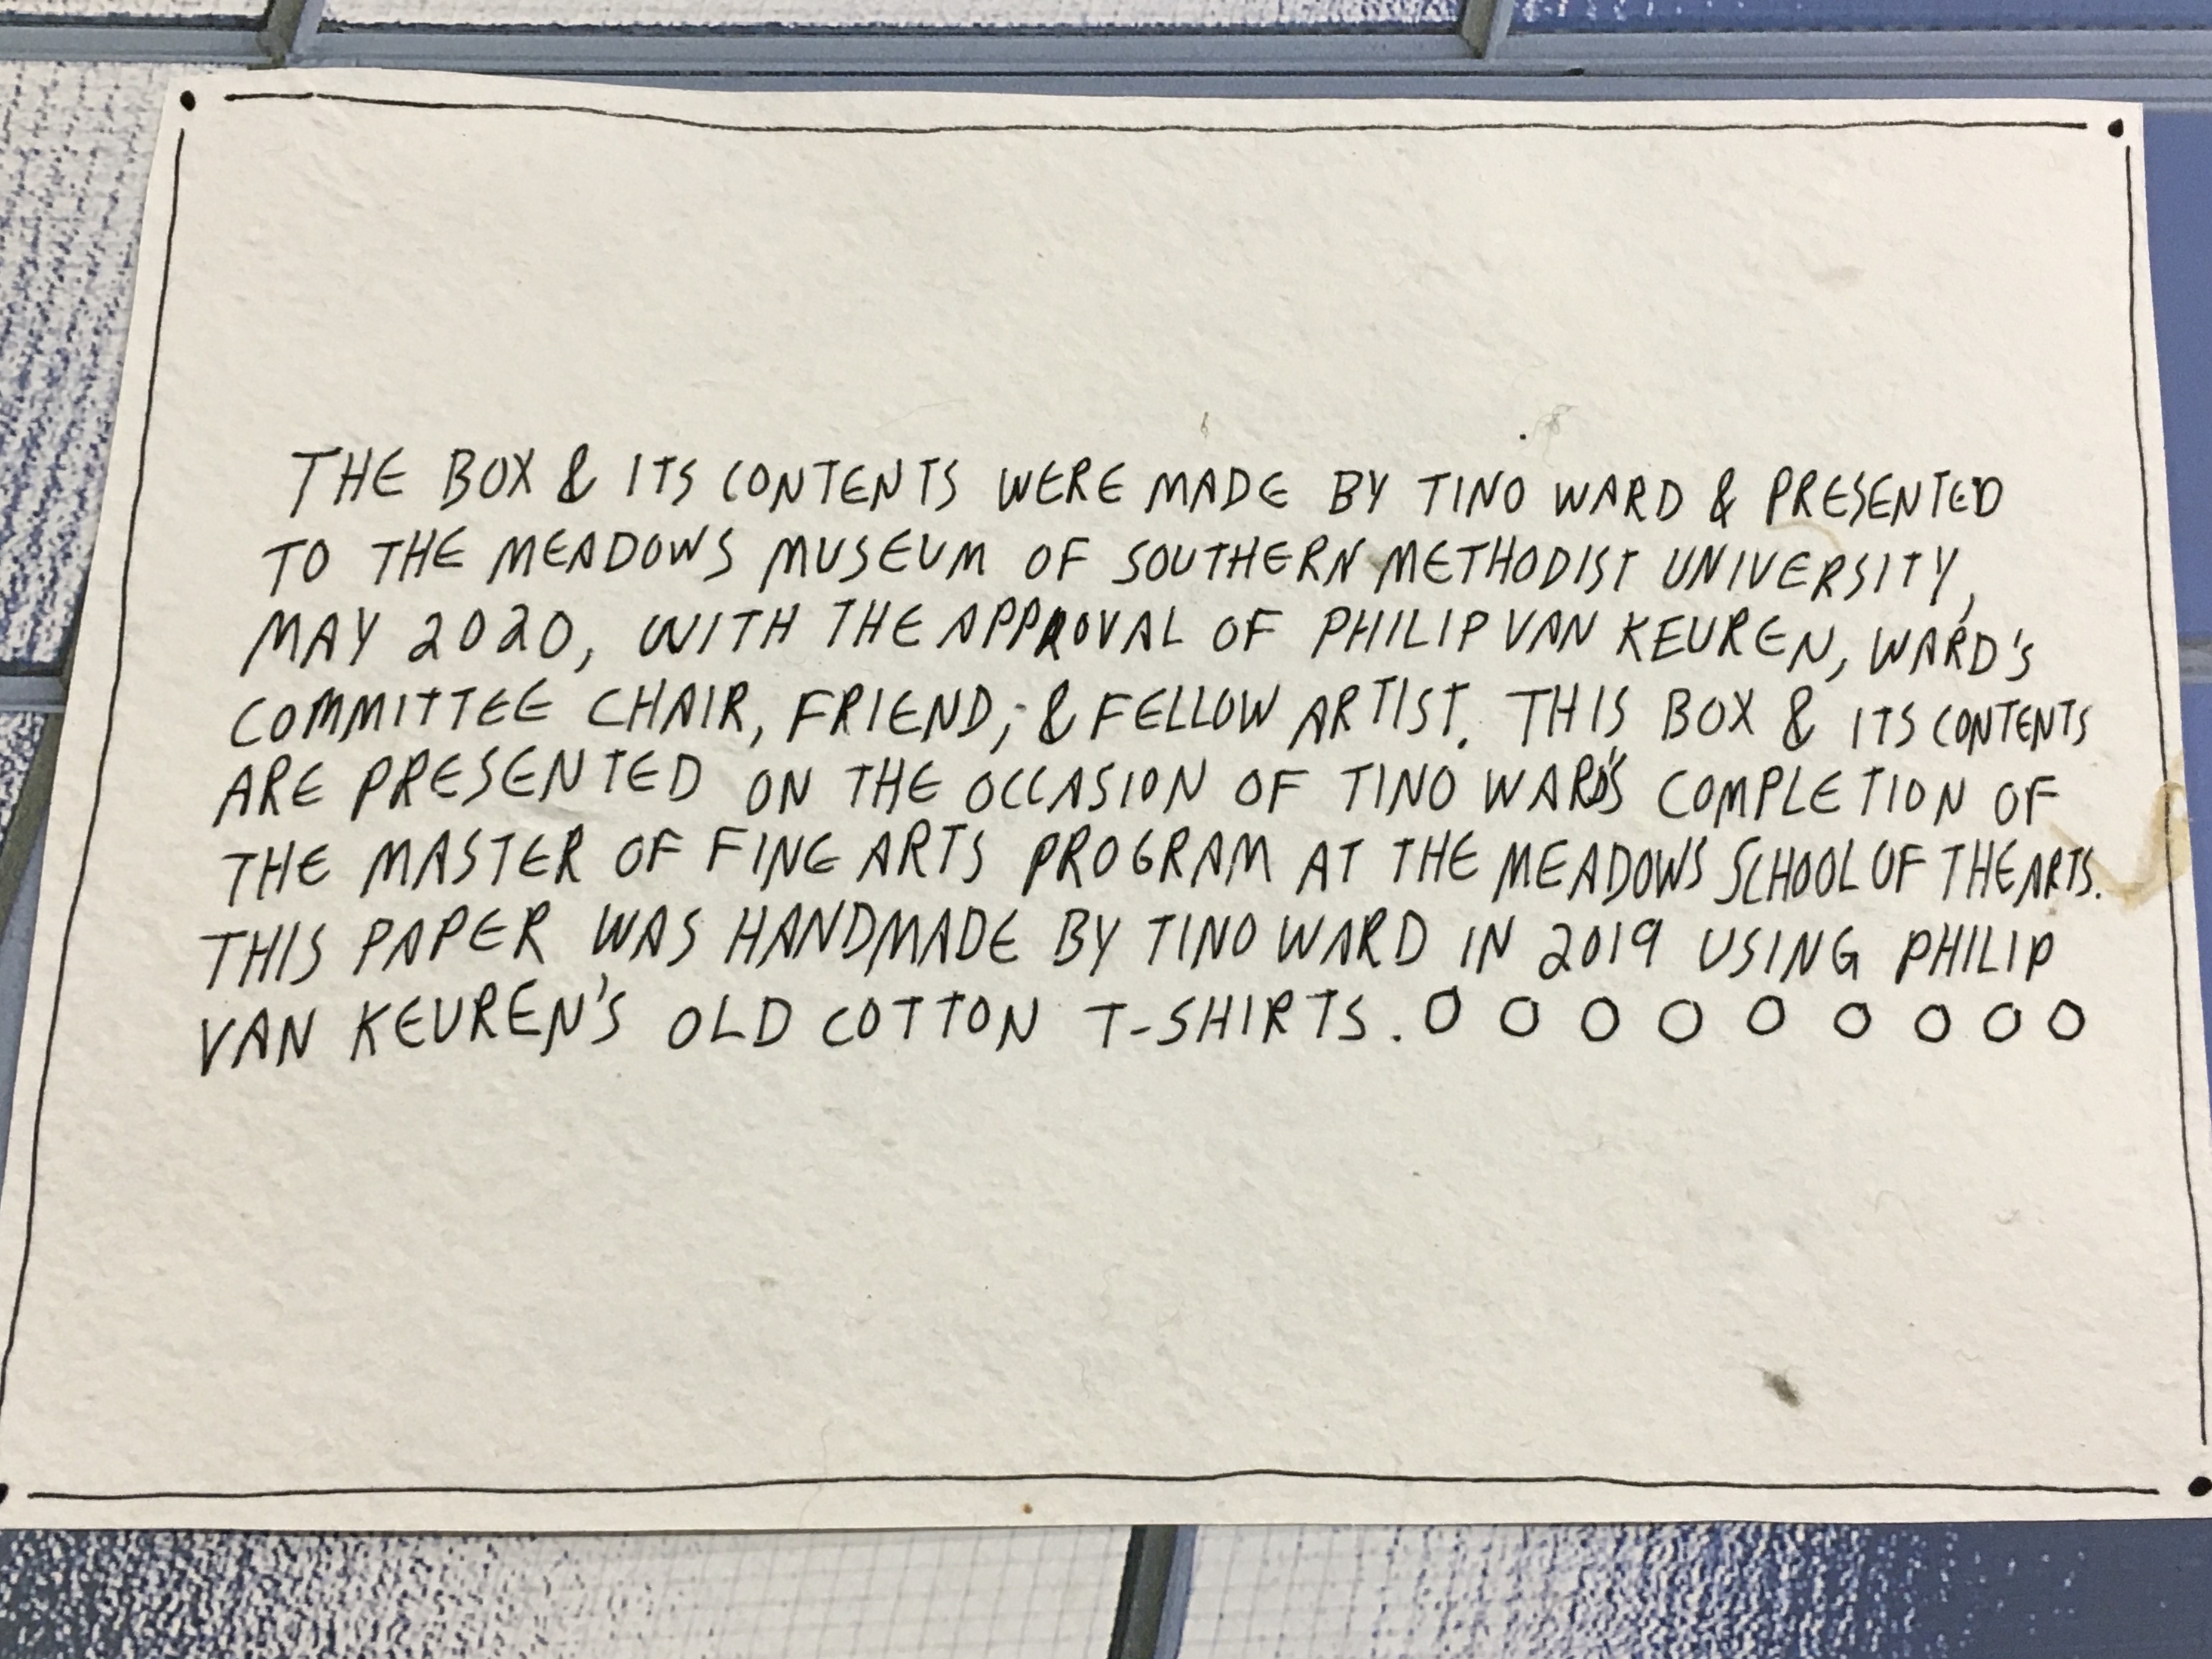 THE BOX & ITS CONTENTS WERE MADE BY TINO WARD & PRESENTED
TO THE MEADOWS MUSEUM OF SOUTHERN METHODIST UNIVERSITY,
MAY 2020, WITH THE APPROVAL OF PHILIP VAN KEUREN, WARD'S
COMMITTEE CHAIR, FRIEND, & FELLOW ARTIST. THIS BOX & ITS CONTENTS
ARE PRESENTED ON THE OCCASION OF TINO WARD'S COMPLETION OF
THE MASTER OF FINE ARTS PROGRAM AT THE MEADOWS SCHOOL OF THE ARTS.
THIS PAPER WAS HANDMADE BY TINO WARD IN 2019 USING PHILIP
VAN KEUREN'S OLD COTTON T-SHIRTS. O O O O O O O O O